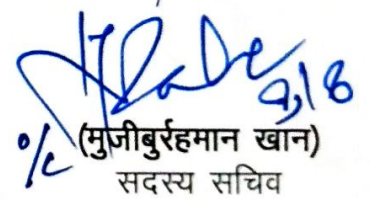 9/8
o/c (मुजीबुर्रहमान खान)
सदस्य सचिव